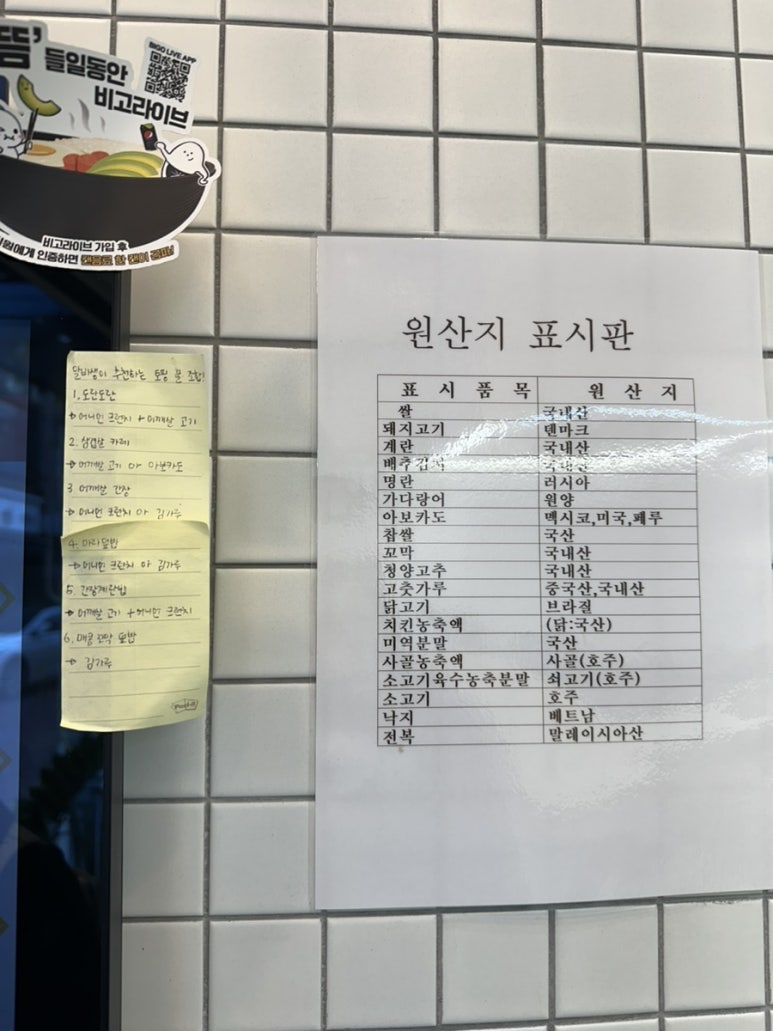 뜸'
들일동안
비고라이브
BIGO LIVE APP
비고라이브 가입 후
인증하면 캔음료 한 캔이 공짜!
알바생이 추천하는 토핑 꿀 조합!
1. 도란도란
→ 어니언 크런치 + 으깨팔 고기
2. 삼겹살 카레
→ 으깨팔 고기 or 아보카도
3. 으깨팔 간장
→ 어니언 크런치 or 김가루
4. 마라덮밥
→ 어니언 크런치 or 김가루
5. 간장계란밥
→ 으깨팔 고기 + 어니언 크런치
6. 매콤 꼬막 덮밥
→ 김가루
원산지 표시판
표 시 품 목 원 산 지
쌀 국내산
돼지고기 덴마크
계란 국내산
배추김치 국내산
명란 러시아
가다랑어 원양
아보카도 멕시코,미국,페루
찹쌀 국산
꼬막 국내산
청양고추 국내산
고춧가루 중국산,국내산
닭고기 브라질
치킨농축액 (닭:국산)
미역분말 국산
사골농축액 사골(호주)
소고기육수농축분말 쇠고기(호주)
소고기 호주
낙지 베트남
전복 말레이시아산